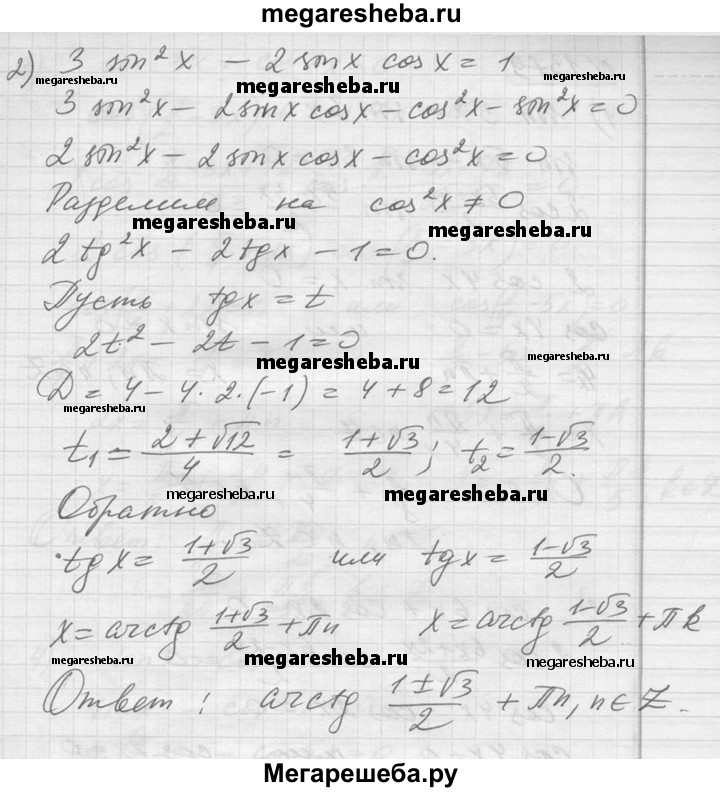 megaresheba.ru
2) 3 sin²x − 2 sin x cos x = 1
megaresheba.ru megaresheba.ru megaresheba.ru
3 sin²x − 2 sin x cos x − cos²x − sin²x = 0
2 sin²x − 2 sin x cos x − cos²x = 0
Разделим на cos²x ≠ 0
megaresheba.ru megaresheba.ru
2 tg²x − 2 tg x − 1 = 0.
Пусть tg x = t
2t² − 2t − 1 = 0
megaresheba.ru megaresheba.ru
D = 4 − 4·2·(−1) = 4 + 8 = 12
megaresheba.ru
t₁ = (2 + √12)/4 = (1 + √3)/2; t₂ = (1 − √3)/2.
megaresheba.ru megaresheba.ru
Обратно
tg x = (1 + √3)/2 или tg x = (1 − √3)/2
megaresheba.ru megaresheba.ru
x = arctg (1 + √3)/2 + πn x = arctg (1 − √3)/2 + πk
megaresheba.ru megaresheba.ru megaresheba.ru
Ответ: arctg (1 ± √3)/2 + πn, n ∈ Z.
Мегарешеба.ру